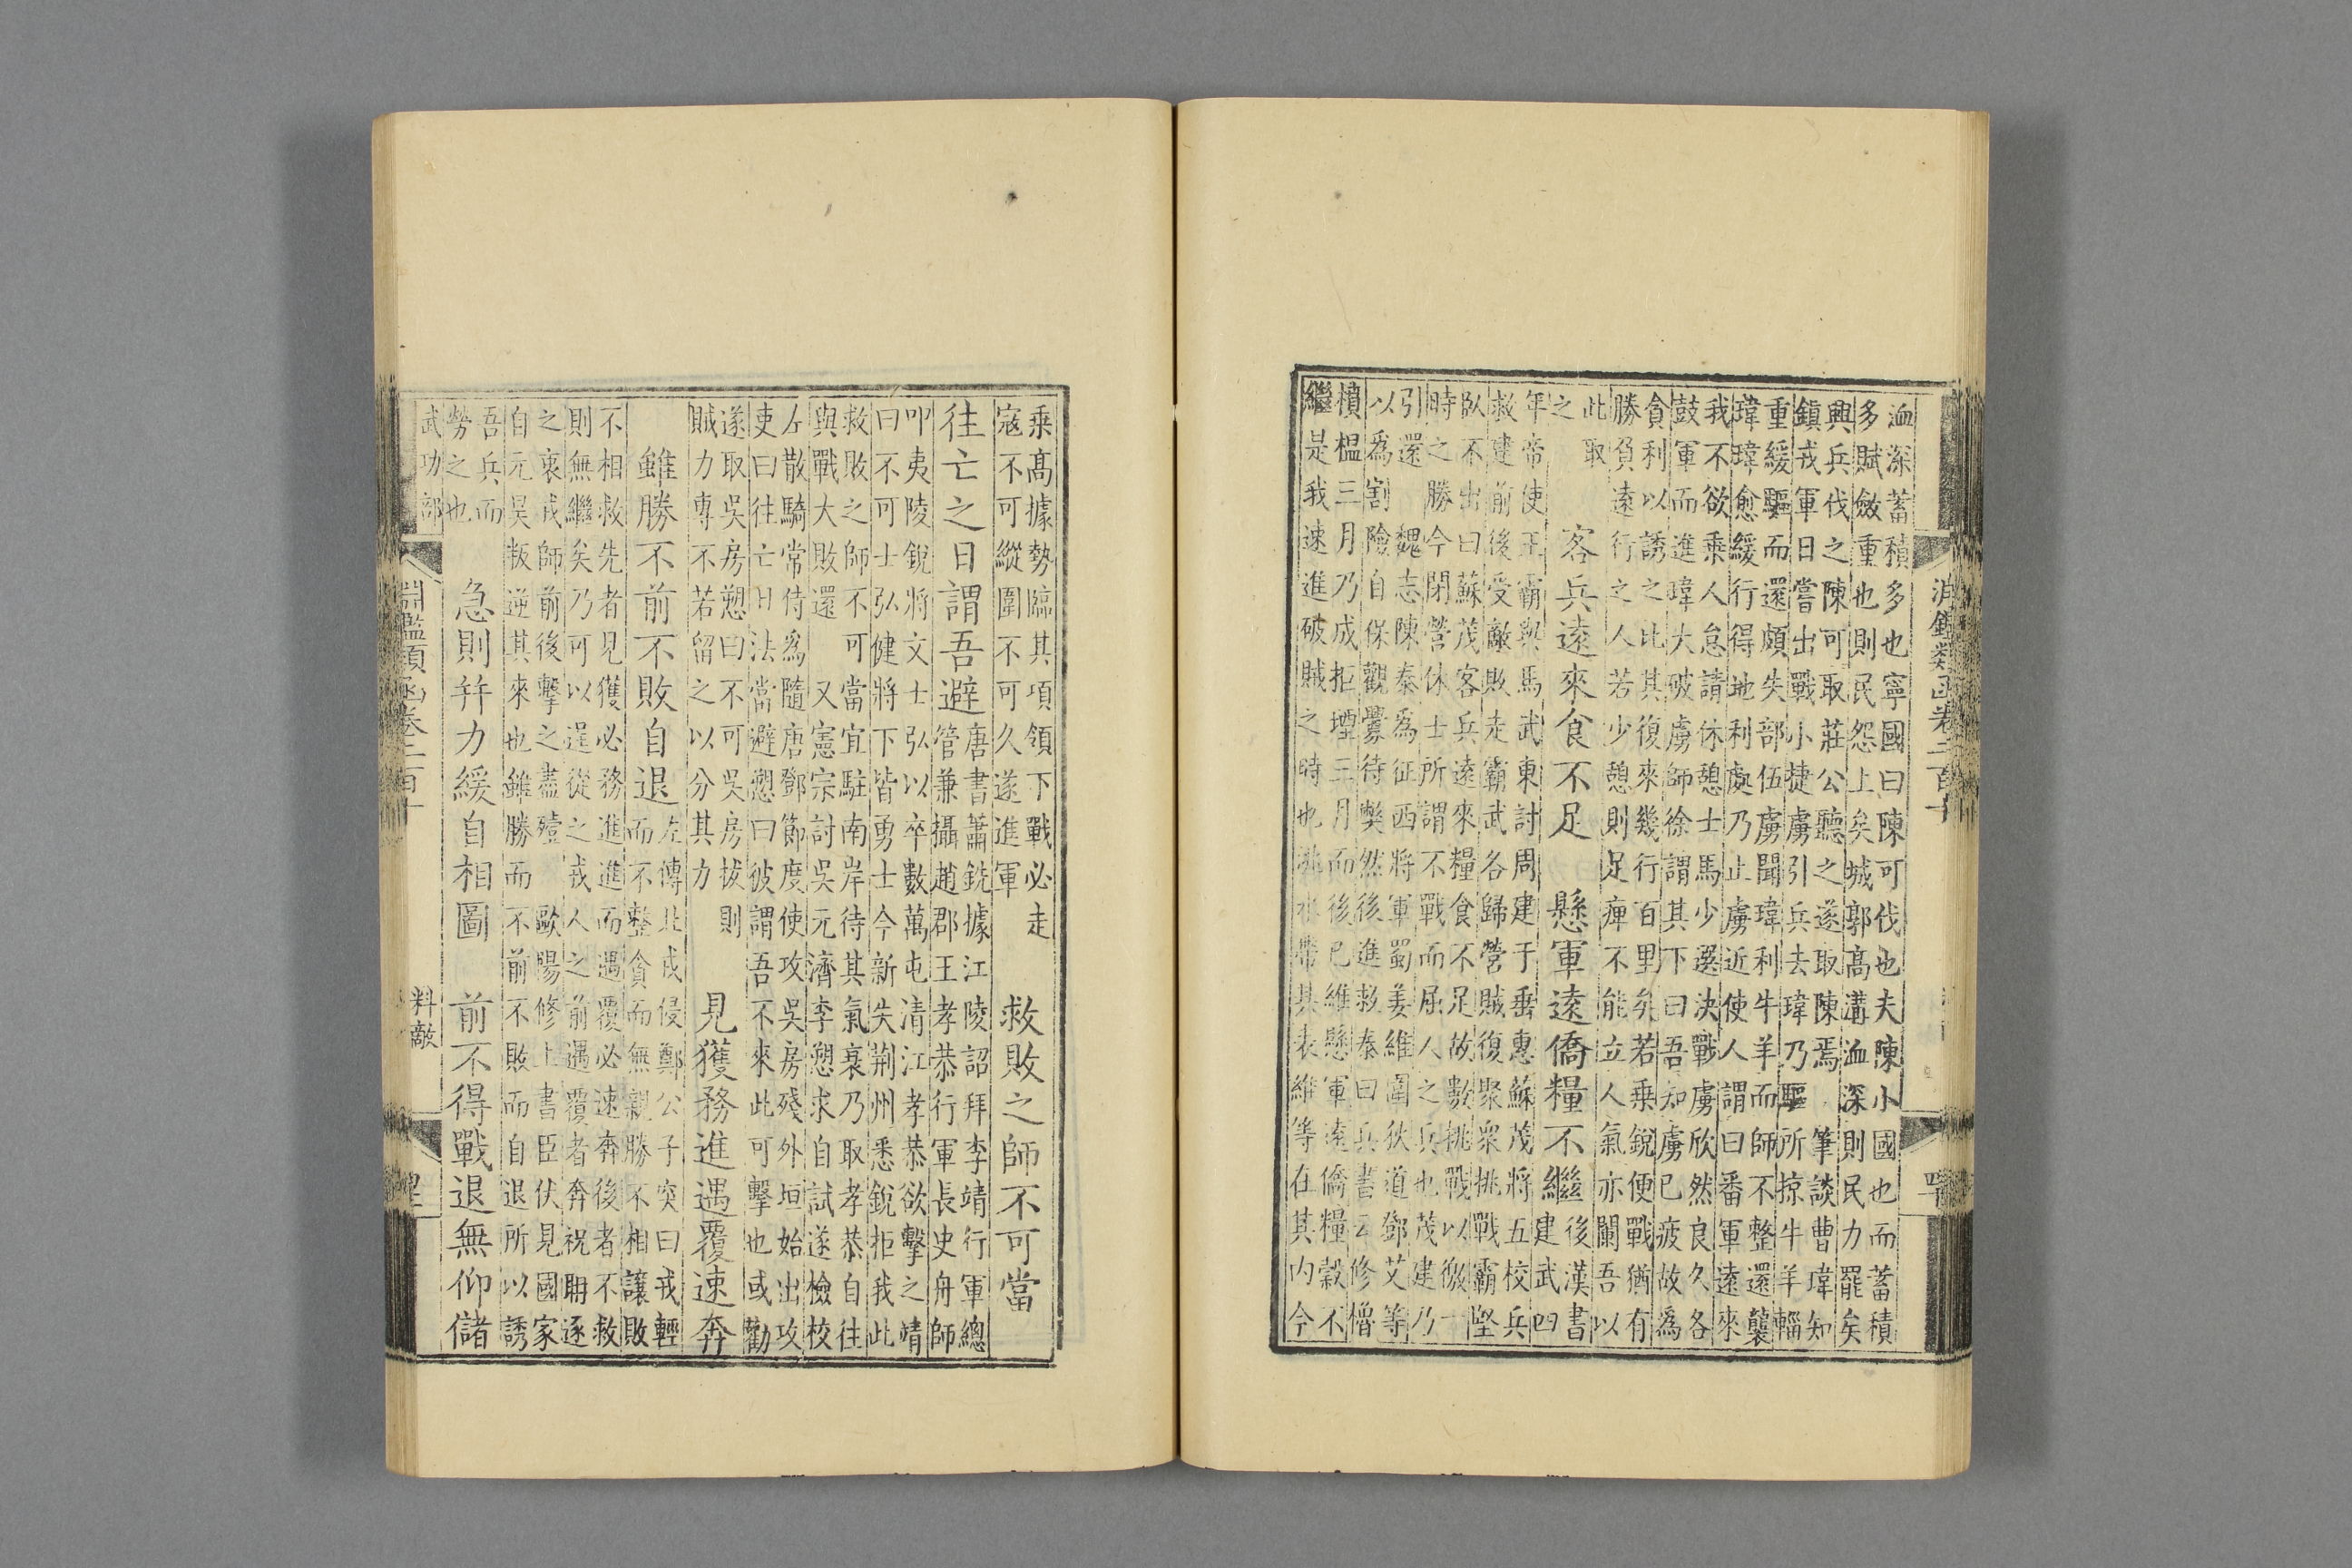 淵鑑類函卷二百十
洫深蓄積多也寧國曰陳可伐也夫陳小國也而蓄積
多賦斂重也則民怨上矣城郭高溝洫深則民力罷矣
興兵伐之陳可取莊公聽之遂取陳焉　筆談曹瑋知
鎮戎軍日嘗出戰小捷虜引兵去瑋乃驅所掠牛羊輜
重緩驅而還頗失部伍虜聞瑋利牛羊而師不整還襲
瑋瑋愈緩行得地利處乃止虜近使人謂曰番軍遠來
我不欲乗人怠請休憩士馬少選決戰虜欣然良久各
鼓軍而進瑋大破虜師徐謂其下曰吾知虜已疲故為
貪利以誘之此其復來幾行百里矣若乗銳便戰猶有
勝負遠行之人若少憩則足痺不能立人氣亦闌吾以
此取
之
客兵遠來食不足　懸軍遠僑糧不繼
後漢書
建武四
年帝使王霸與馬武東討周建于垂惠蘇茂將五校兵
救建前後受敵敗走霸武各歸營賊復聚衆挑戰霸堅
臥不出曰蘇茂客兵遠來糧食不足故數挑戰以徼一
時之勝今閉營休士所謂不戰而屈人之兵也茂建乃
引還　魏志陳泰為征西將軍蜀姜維圍狄道鄧艾等
以為割險自保觀釁待弊然後進救泰曰兵書云修櫓
轒榅三月乃成拒堙三月而後已維懸軍遠僑糧穀不
繼是我速進破賊之時也洮水帶其表維等在其内今
乗髙據勢臨其項領下戰必走
寇不可縱圍不可久遂進軍
救敗之師不可當
往亡之日謂吾避
唐書蕭銑據江陵詔拜李靖行軍總
管兼攝趙郡王孝恭行軍長史舟師
叩夷陵銳將文士弘以卒數萬屯清江孝恭欲擊之靖
曰不可士弘健將下皆勇士今新失荆州悉銳拒我此
救敗之師不可當宜駐南岸待其氣衰乃取孝恭自往
與戰大敗還　又憲宗討吳元濟李愬求自試遂檢校
左散騎常侍為隨唐鄧節度使攻吳房殘外垣始出攻
吏曰往亡日法當避愬曰彼謂吾不來此可擊也或勸
遂取吳房愬曰不可吳房拔則
賊力專不若留之以分其力
見獲務進遇覆速奔
雖勝不前不敗自退
左傳北戎侵鄭公子突曰戎輕
而不整貪而無親勝不相讓敗
不相救先者見獲必務進進而遇覆必速奔後者不救
則無繼矣乃可以逞從之戎人之前遇覆者奔祝聃逐
之衷戎師前後擊之盡殪　歐陽修上書臣伏見國家
自元昊叛逆其來也雖勝而不前不敗而自退所以誘
吾兵而
勞之也
急則并力緩自相圖　前不得戰退無仰儲
武功部
淵鑑類函卷二百十
料敵